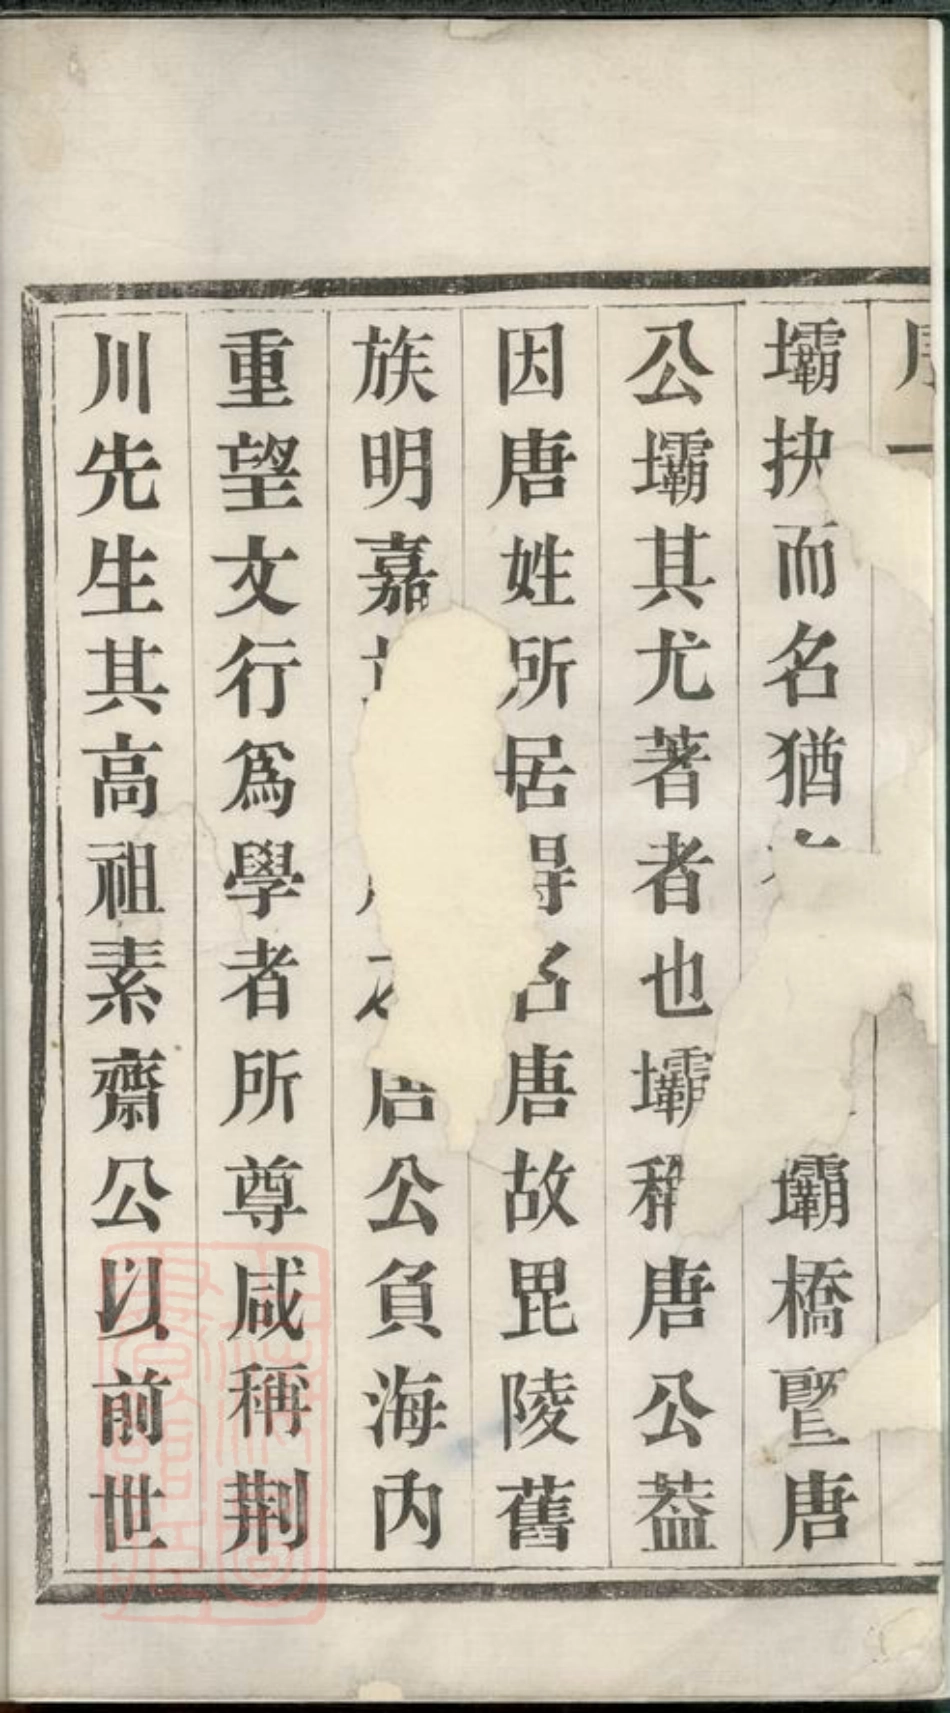 壩抉而名猶壩橋暨唐
公壩其尤著者也壩稱唐公葢
因唐姓所居得名唐故毘陵舊
族明嘉唐公負海內
重望文行爲學者所尊咸稱荆
川先生其高祖素齋公以前世